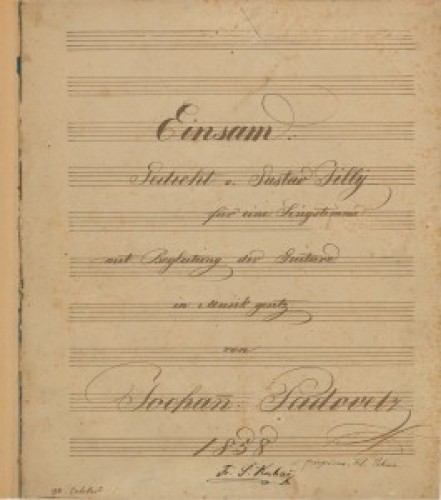 Einsam.
Gedicht v. Gustav Tilly
für eine Singstimme
mit Begleitung der Guitare
in Musik gesetz
von
Johan: Padovetz
1858
Fr. Š. Kuhač